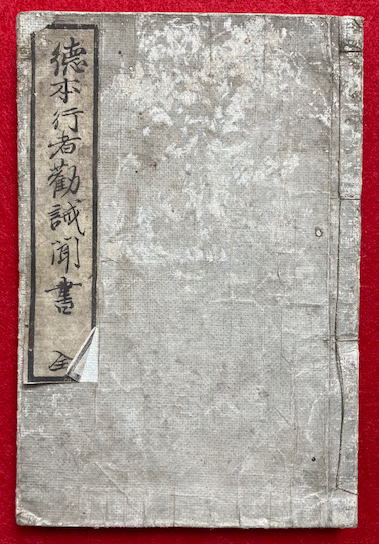 徳本行者勸誡聞書 全